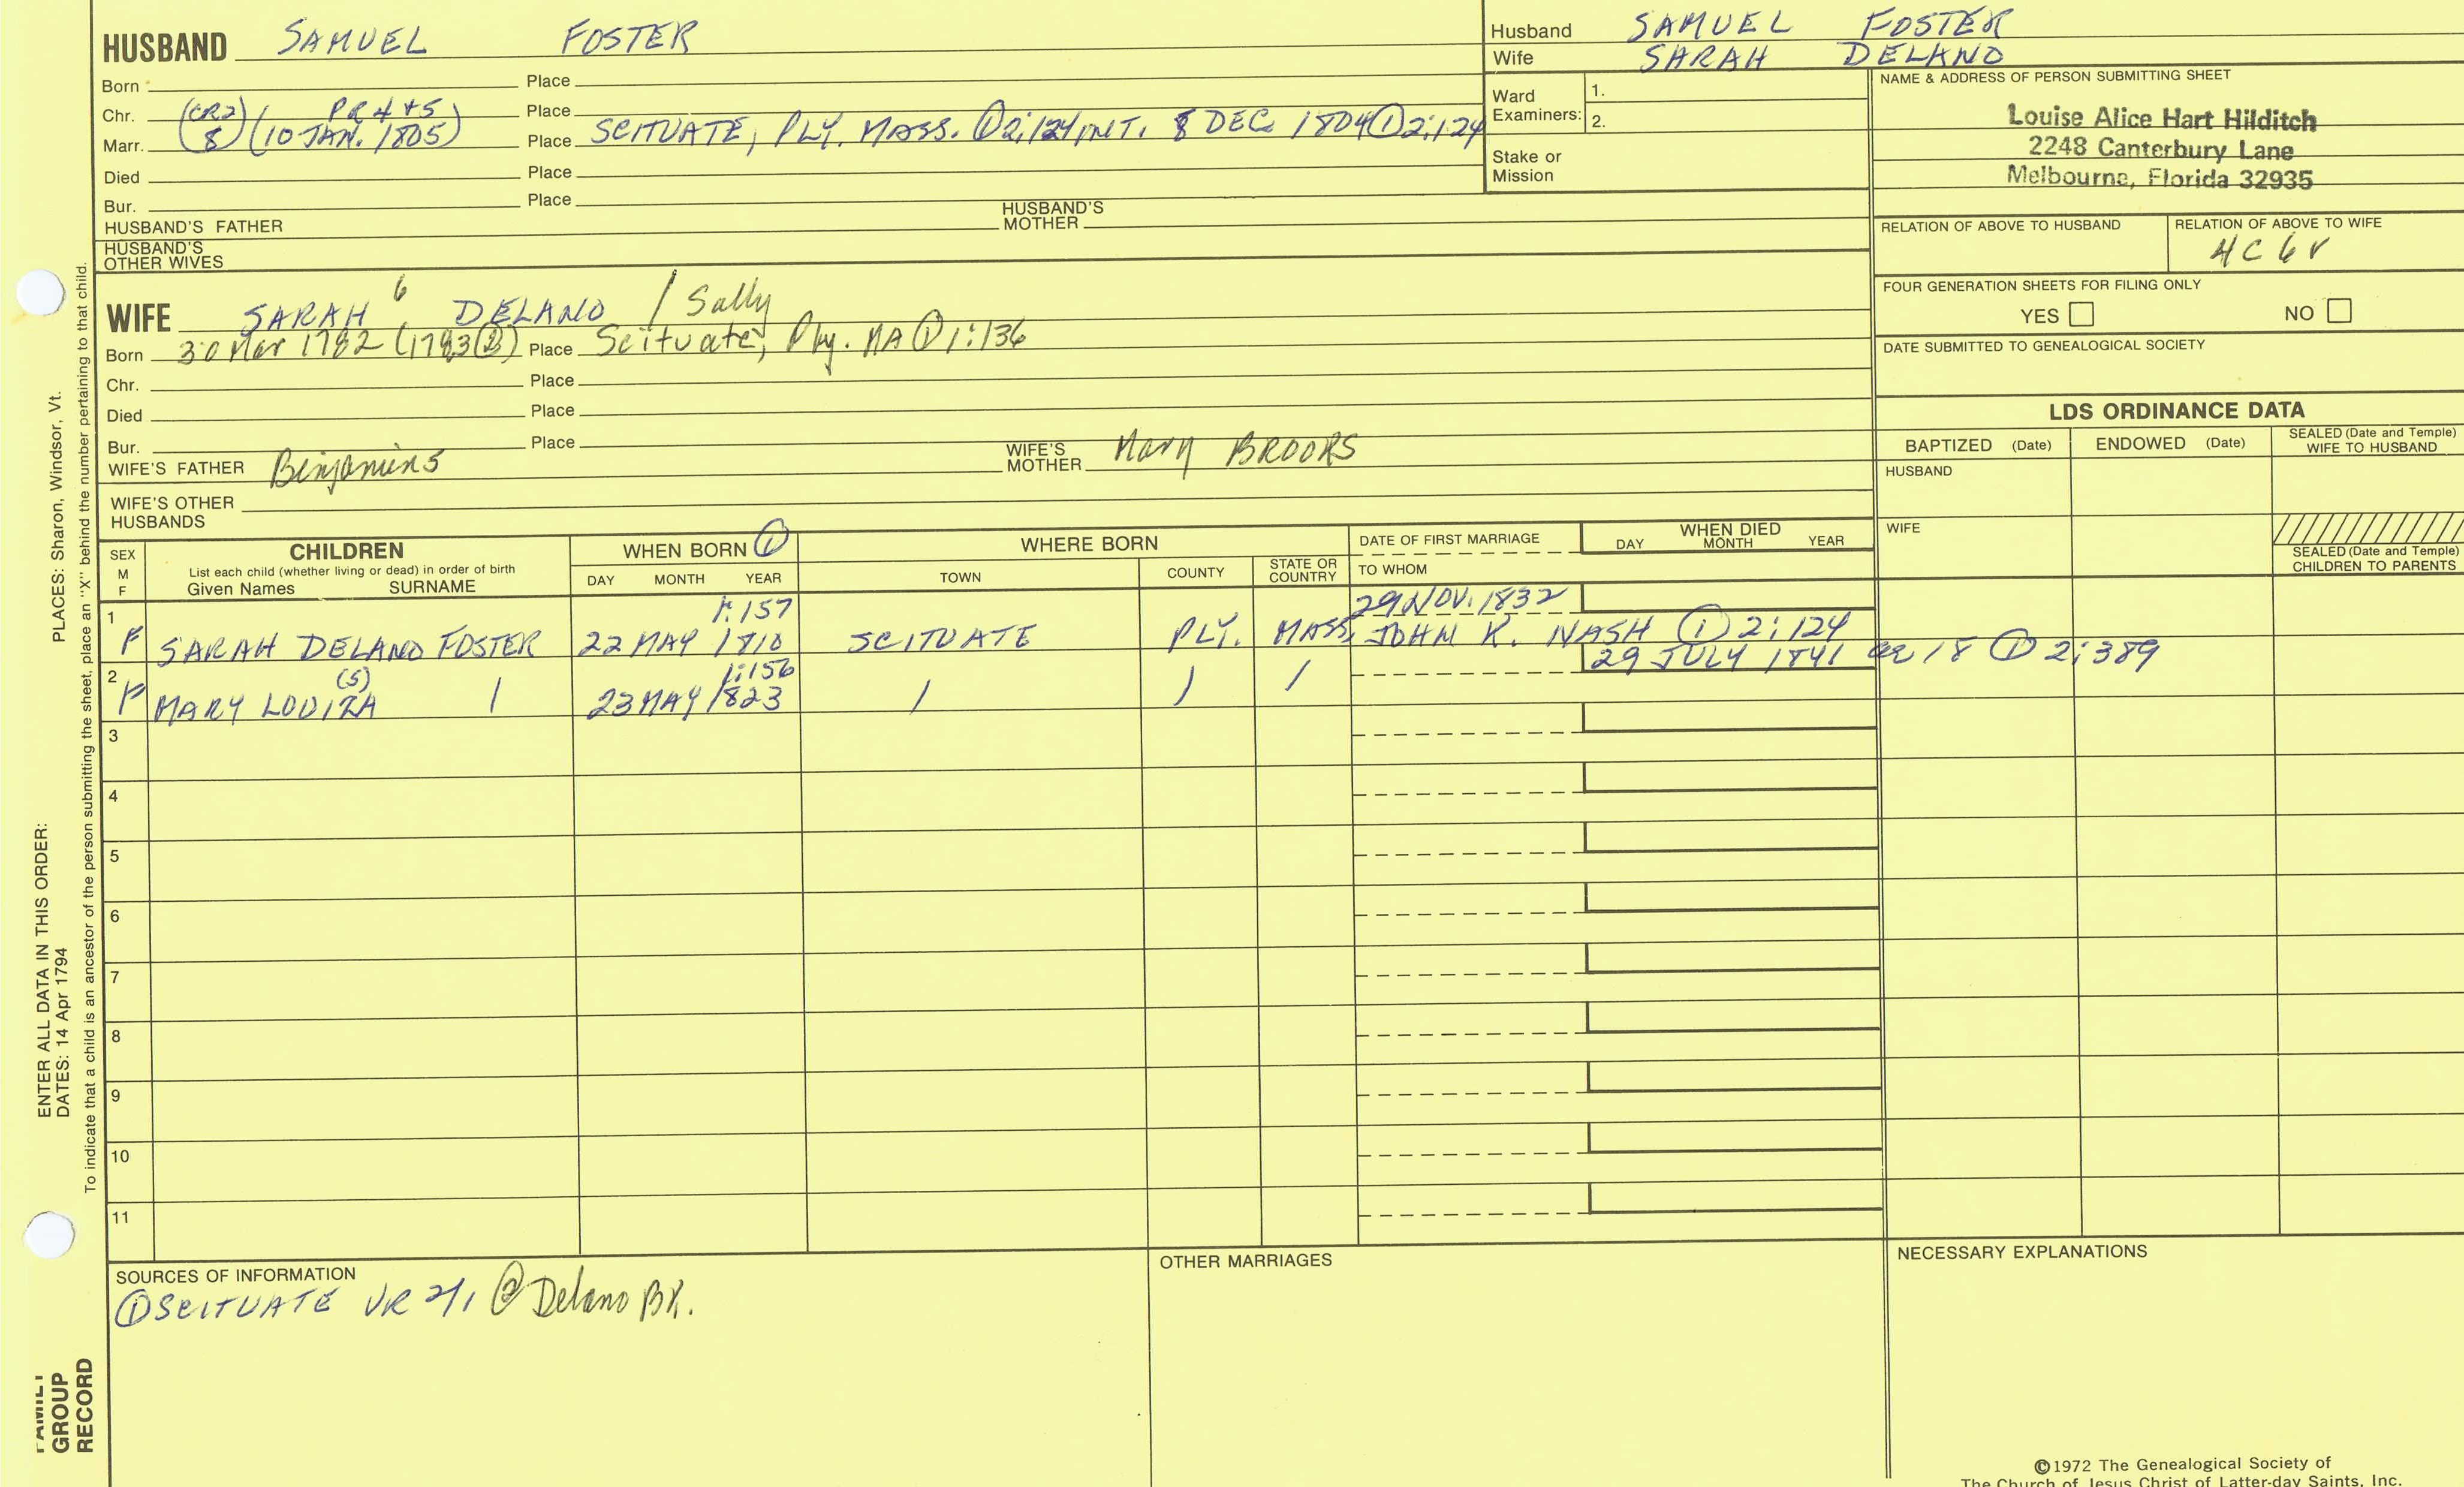 HUSBAND SAMUEL FOSTER
Born Place
Chr. (CR2) PR 4+5 Place
Marr. 8 (10 JAN. 1805) Place SCITUATE, PLY. MASS. ① 2:124, INT. 8 DEC 1804 ① 2:124
Died Place
Bur. Place
HUSBAND'S FATHER HUSBAND'S MOTHER
HUSBAND'S OTHER WIVES
Husband SAMUEL FOSTER
Wife SARAH DELANO
Ward Examiners: 1.
2.
Stake or Mission
NAME & ADDRESS OF PERSON SUBMITTING SHEET
Louise Alice Hart Hilditch
2248 Canterbury Lane
Melbourne, Florida 32935
RELATION OF ABOVE TO HUSBAND RELATION OF ABOVE TO WIFE
4C6r
FOUR GENERATION SHEETS FOR FILING ONLY
YES NO
DATE SUBMITTED TO GENEALOGICAL SOCIETY
WIFE SARAH 6 DELANO / Sally
Born 30 Mar 1782 (1783②) Place Scituate, Ply. MA ① 1:136
Chr. Place
Died Place
Bur. Place
WIFE'S FATHER Benjamin 5 WIFE'S MOTHER Mary BROOKS
WIFE'S OTHER HUSBANDS
LDS ORDINANCE DATA
BAPTIZED (Date) ENDOWED (Date) SEALED (Date and Temple) WIFE TO HUSBAND
HUSBAND
WIFE
SEALED (Date and Temple) CHILDREN TO PARENTS
SEX M F
CHILDREN
List each child (whether living or dead) in order of birth
Given Names SURNAME
WHEN BORN ①
DAY MONTH YEAR
WHERE BORN
TOWN COUNTY STATE OR COUNTRY
DATE OF FIRST MARRIAGE
TO WHOM
WHEN DIED
DAY MONTH YEAR
1 1:157 29 NOV. 1832
F SARAH DELANO FOSTER 22 MAY 1810 SCITUATE PLY. MASS. JOHN K. NASH ① 2:124
2 (S) 1:156 29 JULY 1841 ae 18 ① 2:389
F MARY LOUIZA / 23 MAY 1823 / / /
3
4
5
6
7
8
9
10
11
SOURCES OF INFORMATION
① SCITUATE VR 2/1 ② Delano BK.
OTHER MARRIAGES
NECESSARY EXPLANATIONS
©1972 The Genealogical Society of
The Church of Jesus Christ of Latter-day Saints, Inc.
ENTER ALL DATA IN THIS ORDER:
DATES: 14 Apr 1794 PLACES: Sharon, Windsor, Vt.
To indicate that a child is an ancestor of the person submitting the sheet, place an "X" behind the number pertaining to that child.
FAMILY
GROUP
RECORD